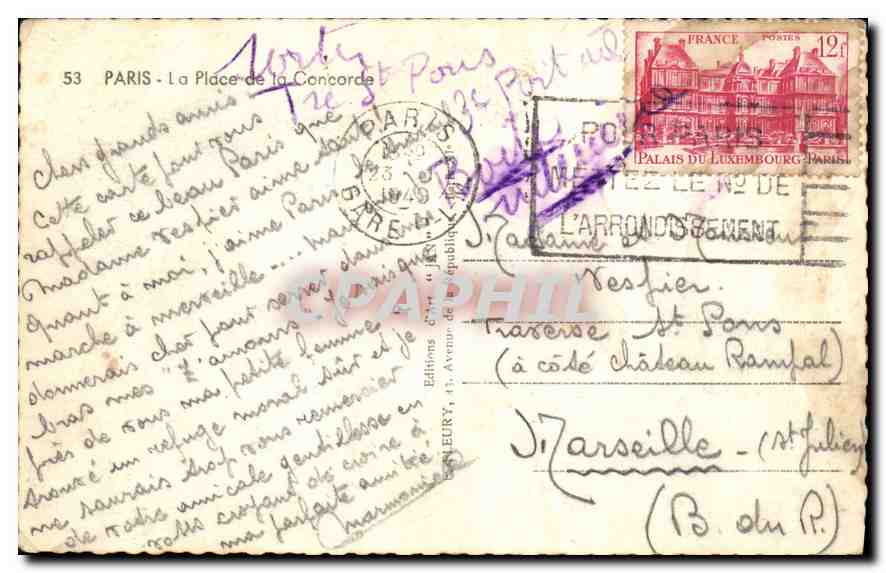 53 PARIS - La Place de la Concorde
Chers grands amis
Cette carte pour vous
rappeler ce beau Paris que
Madame Vespier aime tant
Quant à moi, j'aime Paris, le
marche à merveille.... mais
donnerais cher pour serrer dans
bras mes "2 amours" jusque
près de vous ma petite femme a
trouvé un refuge moral sûr et je
ne saurais trop vous remercier
de votre amicale gentillesse en
vous croyant de croire à
ma parfaite amitié,
Tre St Pons
PARIS
23
1949
GARE
FRANCE POSTES 12f
PALAIS DU LUXEMBOURG-PARIS
POUR PARIS
METTEZ LE No DE
L'ARRONDISSEMENT
Editions d'Art "JAN"
FLEURY, 43, Avenue de la République
CPAPHIL
Madame et Monsieur
Vespier
Traverse St Pons
(à côté château Rampal)
Marseille - (St Julien)
(B. du R.)